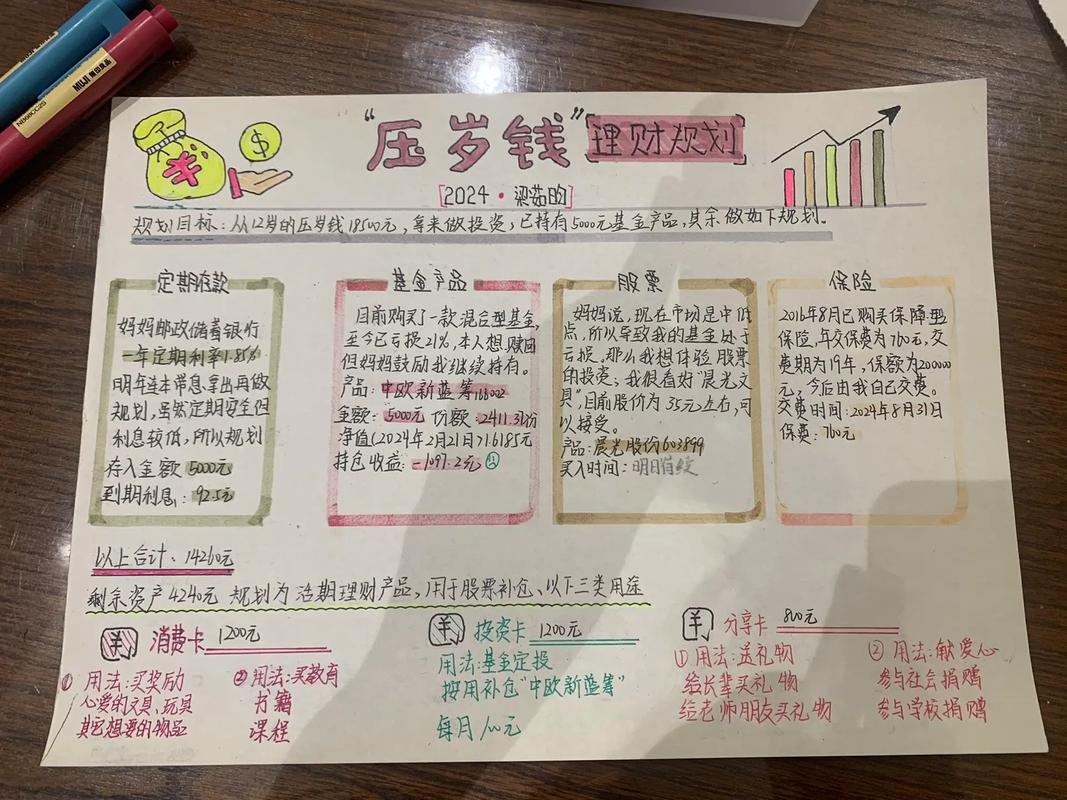 MUJI 無印良品
"压岁钱"理财规划
[2024·梁茹昀]
规划目标:从12岁的压岁钱18500元,拿来做投资,已持有5000元基金产品,其余做如下规划.
定期存款
妈妈邮政储蓄银行
一年定期利率1.85%
明年连本带息拿出再做
规划,虽然定期安全但
利息较低,所以规划
存入金额 5000元
到期利息: 92.5元
基金产品
目前购买了一款混合型基金,
至今已亏损21%,本人想赎回
但妈妈鼓励我继续持有。
产品:中欧新蓝筹166002
金额:5000元 份额:2411.31份
净值(2024年2月21日)1.6185元
持仓收益:-1097.2元
股票
妈妈说,现在市场是中低
点,所以导致我的基金处于
亏损。那么我想体验股票
的投资;我很看好"晨光文
具",目前股价为35元左右,可
以接受。
产品:晨光股份603899
买入时间:明日
保险
2016年8月已购买保障型
保险,年交保费为760元,交
费期为19年,保额为200000
元,今后由我自己交费。
交费时间:2024年8月31日
保费:760元
以上合计:14260元
剩余资产4240元 规划为活期理财产品,用于股票补仓、以下三类用途
羊 消费卡 1200元
① 用法:买奖励
心爱的文具、玩具
其它想要的物品
② 用法:买教育
书籍
课程
羊 投资卡 1200元
用法:基金定投
按用补仓"中欧新蓝筹"
每月100元
羊 分享卡 800元
① 用法:送礼物
给长辈买礼物
给老师朋友买礼物
② 用法:献爱心
参与社会捐赠
参与学校捐赠